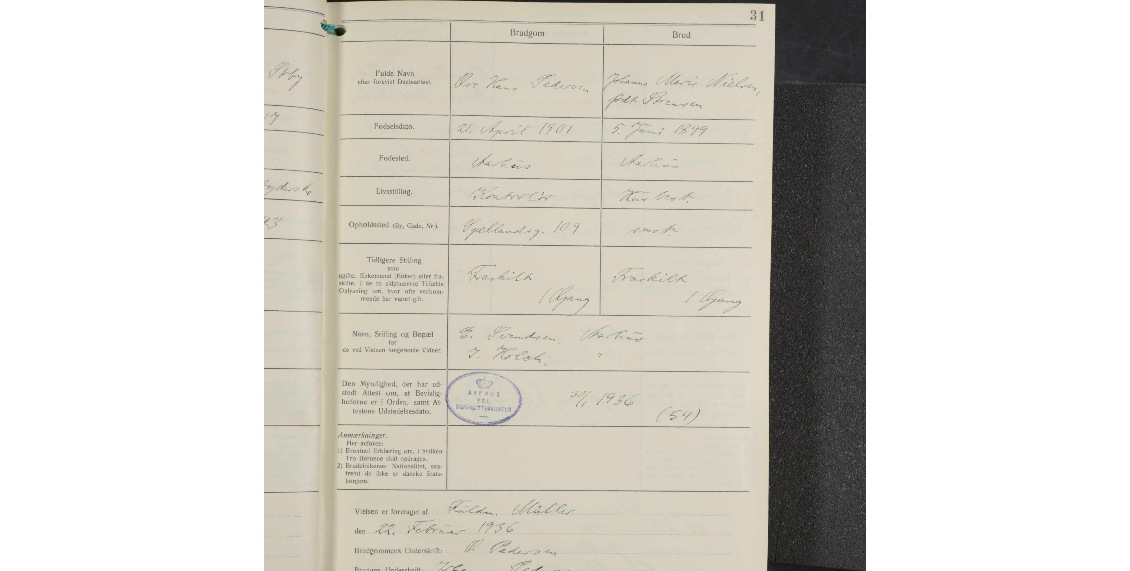 31
Brudgom Brud
Fulde Navn
efter forevist Daabsattest.
Ove Hans Pedersen
Johanne Marie Nielsen,
født Sørensen
Fødselsdato. 21. April 1901 5. Juni 1899
Fødested. Aarhus Aarhus
Livsstilling. Kontorist
Opholdssted (By, Gade, Nr.). Sjællandsg. 109 smst.
Tidligere Stilling
som
ugifte, Enkemand (Enke) eller fra-
skilte, i de to sidstnævnte Tilfælde
Oplysning om, hvor ofte vedkom-
mende har været gift.
Fraskilt Fraskilt
1 Gang 1 Gang
Navn, Stilling og Bopæl
for
de ved Vielsen fungerende Vidner.
E. Svendsen, Aarhus
Den Myndighed, der har ud-
stedt Attest om, at Betingel-
hederne er i Orden, samt At-
testens Udstedelsesdato.
AARHUS
1936
(54)
Anmærkninger.
Her anføres:
1) Eventuel Erklæring om, i hvilken
Tro Børnene skal opdrages.
2) Brudefolkenes Nationalitet, saa-
fremt de ikke er danske Stats-
borgere.
Vielsen er foretaget af Müller
den 22. Februar 1936
Brudgommens Underskrift: O. Pedersen
Brudens Underskrift: